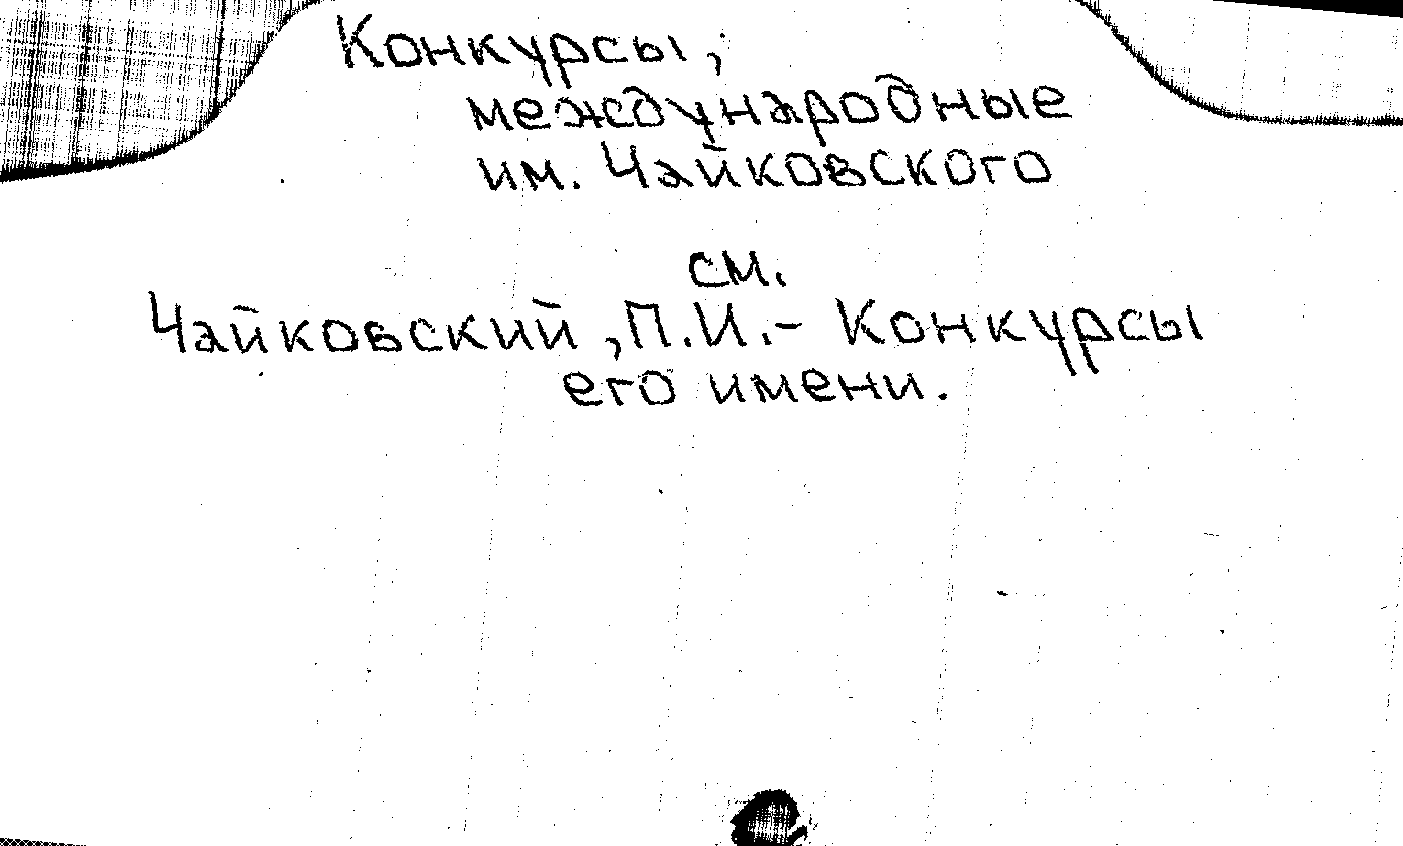 Конкурсы,
международные
им. Чайковского
см.
Чайковский, П.И.- Конкурсы
его имени.